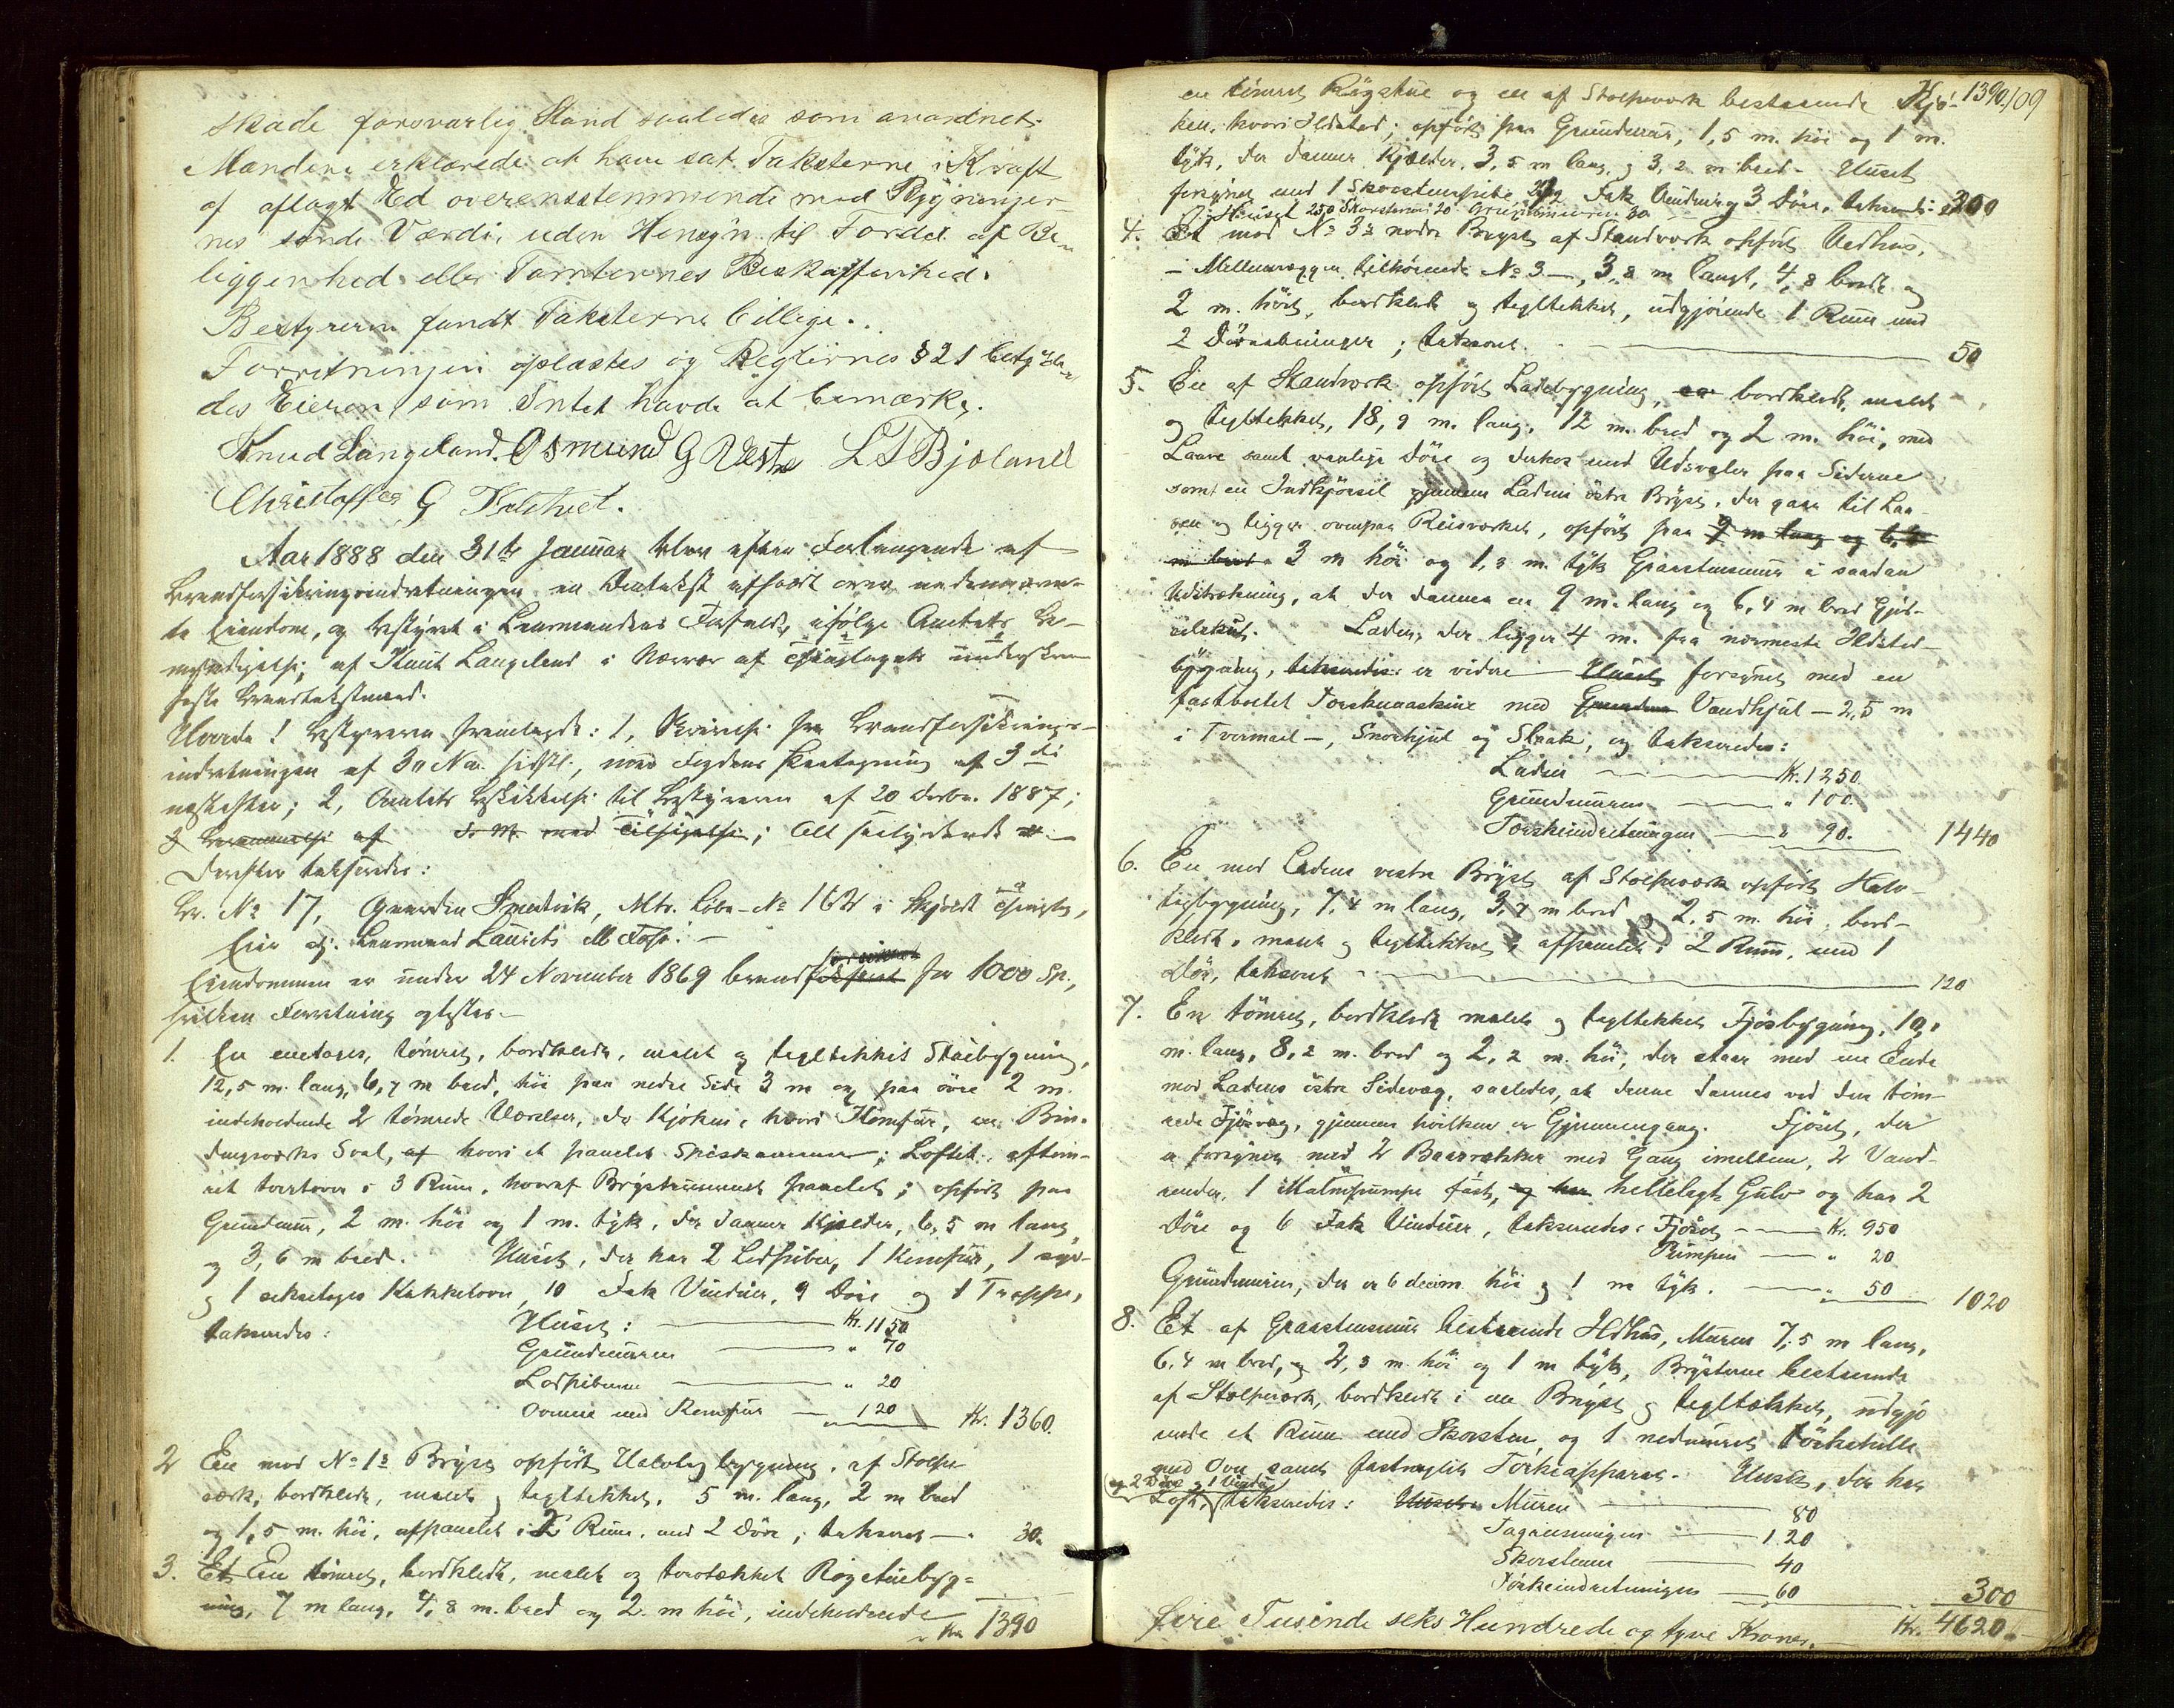 Skade forsvarlig Stand saaledes som anordnet.
Mændene erklærede at have sat Taksterne i Kraft
af aflagt Ed overensstemmende med Bygninger-
nes sande Værdi, uden Hensyn til Fordel af Be-
liggenhed eller Tomternes Beskaffenhed.
Bestyreren fandt Taksterne billige.
Forretningen oplæstes og Reglernes § 21 betyde-
des Eieren, som Intet havde at bemærke.
Knud Langeland. Osmund G Vestre L T Bjoland
Christoffer G
Aar 1888 den 31te Januar blev efter Forlangende af
Brandforsikringsindretningen en Omtakst afholdt over nedennævn-
te Eiendom, og bestyret i Lensmandens Forfald, ifølge Amtets Be-
myndigelse, af Knut Langeland i Nærvær af Thinglagets underskrev-
Brandtakstmænd.
Hvorda! Bestyreren fremlagde: 1, Skrivelse fra Brandforsikrings-
indretningen af 30 Nov. sidstl., med Fogdens Paategning af 3die
næstefter; 2, Amtets Beskikkelse til Bestyreren af 20 Decbr. 1887;
af med Tilsigelse;
Derefter takseredes:
Br. No 17, Gaarden Smedvik, Mtr. Løbe-No 162 i Skjold Thinglag,
Eier og Lensmand Laurits M
Eiendommen er under 24 November 1869 brandforsikret for 1000 Sp.,
hvilken Forretning oplystes.
1. En enetages, tømret, bordklædt, malet og tegltækket Stuebygning,
12,5 m. lang, 6,7 m bred, høi paa nedre Side 3 m og paa øvre 2 m.
indeholdende 2 tømrede Værelser, do Kjøken, hvori Komfur, en Bin-
dingsværks Sval, af hvori et panelet Spiskammer; Loftet, aftøm-
ret tvertover i 3 Rum, hvoraf Brystrummet panelet; opført paa
Grundmur, 2 m. høi og 1 m. tyk, der danner Kjælder, 6,5 m lang
og 3,6 m bred. Huset, der har 2 Lodpiber, 1 Komfur, 1
og 1 seksetages Kakkelovn, 10 Fak Vinduer, 9 Døre og 1 Trappe,
takseredes: Huset: Kr. 1150
Grundmuren " 70
Lodpiberne " 20
Ovnene med Komfur 120 Kr. 1360.
2 En mod No 1s Bryst opført Halvtagbygning, af Stolpe-
værk, bordklædt, malet og tegltækket, 5 m. lang, 2 m bred
og 1,5 m. høi, afpanelet i 2 Rum, med 2 Døre; taksert 30.
3. Et En tømret, bordklædt, malet og torvtækket Røgstuebyg=
ning, 7 m lang, 4,8 m. bred og 2 m høi, indeholdende
Kr 1390
en tømret Røgstue og en af Stolpeværk bestaaende Kjø- 1390. 109
ken, hvori Ildsted; opført paa Grundmur, 1,5 m. høi og 1 m.
tyk, der danner Kjælder, 3,5 m lang og 3,2 m bred. Huset
forsynet med 1 Skorstenspibe, Fak Vinduer og 3 Døre, takseredes: 300
Huset 250 Skorstenen 20 Grundmuren 30
4. Et mod No 3s nedre Bryst af Standværk opført Vedhus,
- Mellemvæggen tilhørende No 3 -, 3,8 m langt, 4,8 bredt og
2 m. høit, bordklædt og tegltækket, udgjørende 1 Rum med
2 Døraabninger; taksert 50
5. En af Standværk opført Ladebygning, bordklædt, malet
og tegltækket, 18,9 m. lang, 12 m. bred og 2 m. høi, med
Laave samt vanlige Døre og derhos med Udsvaler paa Siderne
samt en Indkjørsel gjennem Ladens østre Bryst, der gaar til Laa-
ven og ligger ovenpaa Reisværket, opført paa 9 m lang og 6,4
m bred 3 m høi og 1,3 m. tyk Graastensmur i saadan
Udstrækning, at der dannes en 9 m. lang og 6,4 m bred Gjød-
selskut. Laden, der ligger 4 m. fra nærmeste Ildsted-
bygning, takseredes: er videre Huset forsynet med en
fastboltet Torskemaskine med Vandhjul - 2,5 m
i Tvermaal -, Snorhjul og Staak, og takseredes:
Laden Kr. 1250.
Grundmuren " 100.
Torskeindretningen " 90. 1440
6. En mod Ladens vestre Bryst af Stolpeværk opført Halv-
tagbygning, 7,4 m lang, 3,7 m bred og 2,5 m. høi, bord-
klædt, malet og tegltækket, afpanelet i 2 Rum, med 1
Dør, taksert 120
7. En tømret, bordklædt malet og tegltækket Fjøsbygning, 10,
m. lang, 8,2 m. bred og 2,2 m. høi, der staar med en Ende
mod Ladens østre Sidevæg, saaledes, at denne dannes ved den tøm-
rede Fjøsvæg, gjennem hvilken er Gjennemgang. Fjøset, der
er forsynet med 2 Baasrækker med Gang imellem, 2 Vand-
render, 1 Malmpumpe fast, og har hellelagt Gulv og har 2
Døre og 6 Fak Vinduer, takseredes: Fjøset Kr. 950
Pumpen " 20
Grundmuren, der er 6 decim. høi og 1 m tyk. " 50 1020
8. Et af Graastensmur bestaaende Ildhus, Muren 7,5 m lang,
6,4 m bred, og 2,3 m. høi og 1 m tyk, Brysterne bestaaende
af Stolpeværk, bordklædt i en Bryst og tegltækket, udgjø
rende et Rum med Skorsten og 1 nedmuret Tørkehelle
med Ovn samt fastnaglet Tørkeapparat. Huset, der har
og 2 Døre og 1 Vindu
Loft, takseredes: Huset: Muren 80
Tagreisningen 120
Skorstenen 40
Tørkeindretningen 60 300
Fire Tusinde seks Hundrede og tyve Kroner. Kr. 4620.